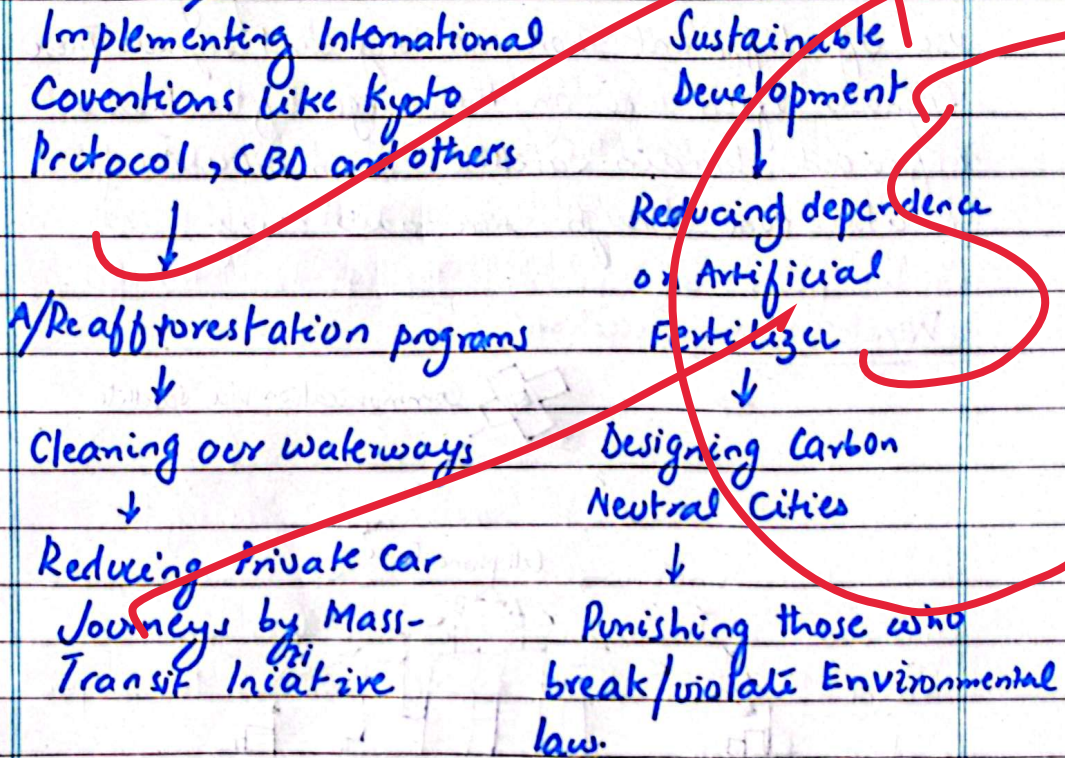 Implementing International
Coventions like Kyoto
Protocol, CBD and others
↓
A/Reaffforestation programs
↓
Cleaning our waterways
↓
Reducing Private Car
Journeys by Mass-
Transit Iniative
ti
Sustainable
Development
↓
Reducing dependence
on Artificial
Fertilizer
↓
Designing Carbon
Neutral Cities
↓
Punishing those who
break/violate Environmental
law.